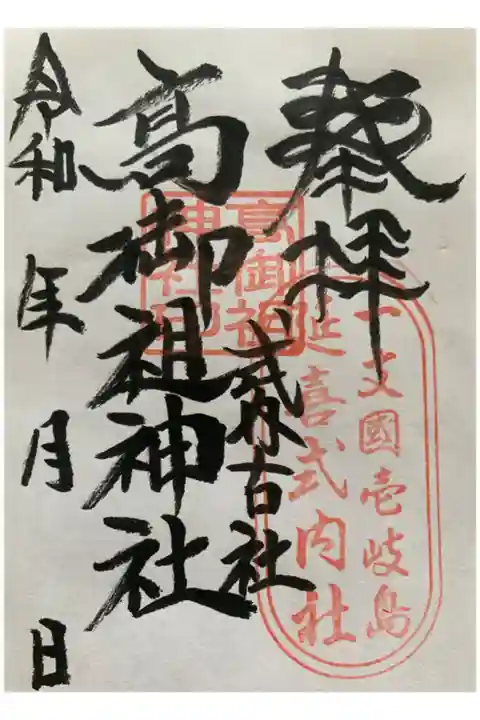 奉拝
一支國壱岐島
延喜式内社
式内古社
高御祖神社
高御祖
神社印
令和 年 月 日